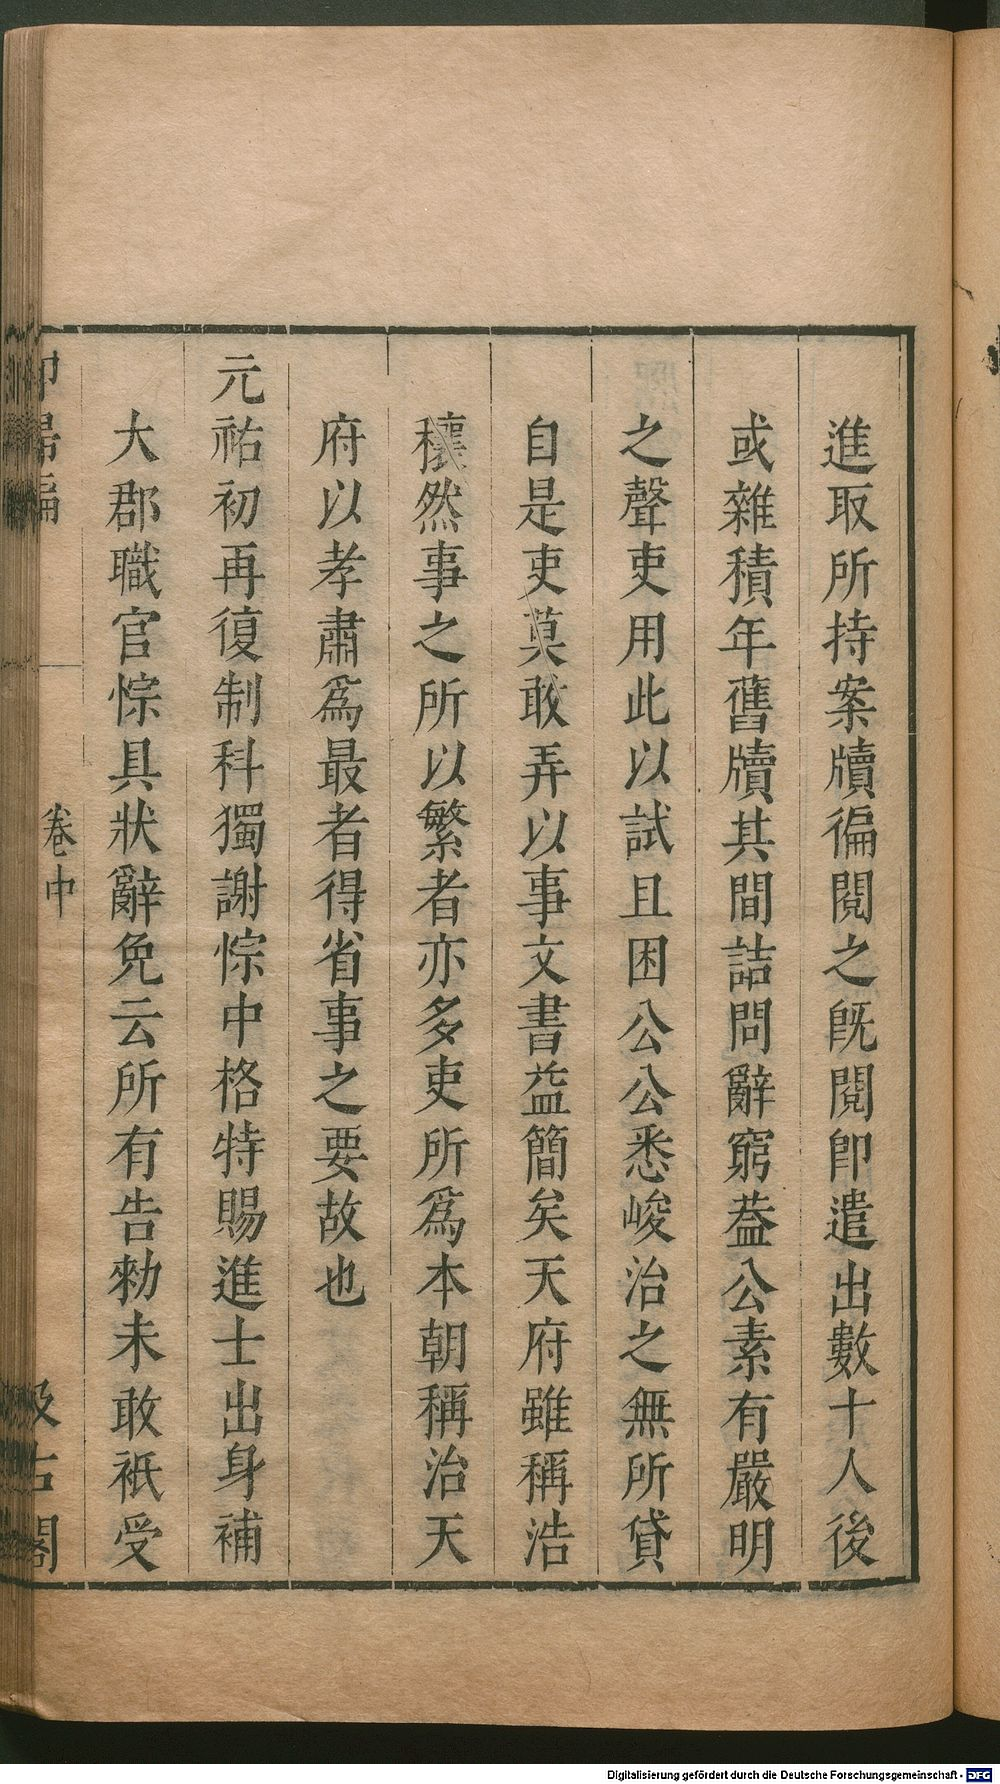 進取所持案牘徧閱之旣閱卽遣出數十人後
或雜積年舊牘其間詰問辭窮葢公素有嚴明
之聲吏用此以試且困公公悉峻治之無所貸
自是吏莫敢弄以事文書益簡矣天府雖稱浩
穰然事之所以繁者亦多吏所爲本朝稱治天
府以孝肅爲最者得省事之要故也
元祐初再復制科獨謝悰中格特賜進士出身補
大郡職官悰具狀辭免云所有告勑未敢祇受
卷中
Digitalisierung gefördert durch die Deutsche Forschungsgemeinschaft - DFG